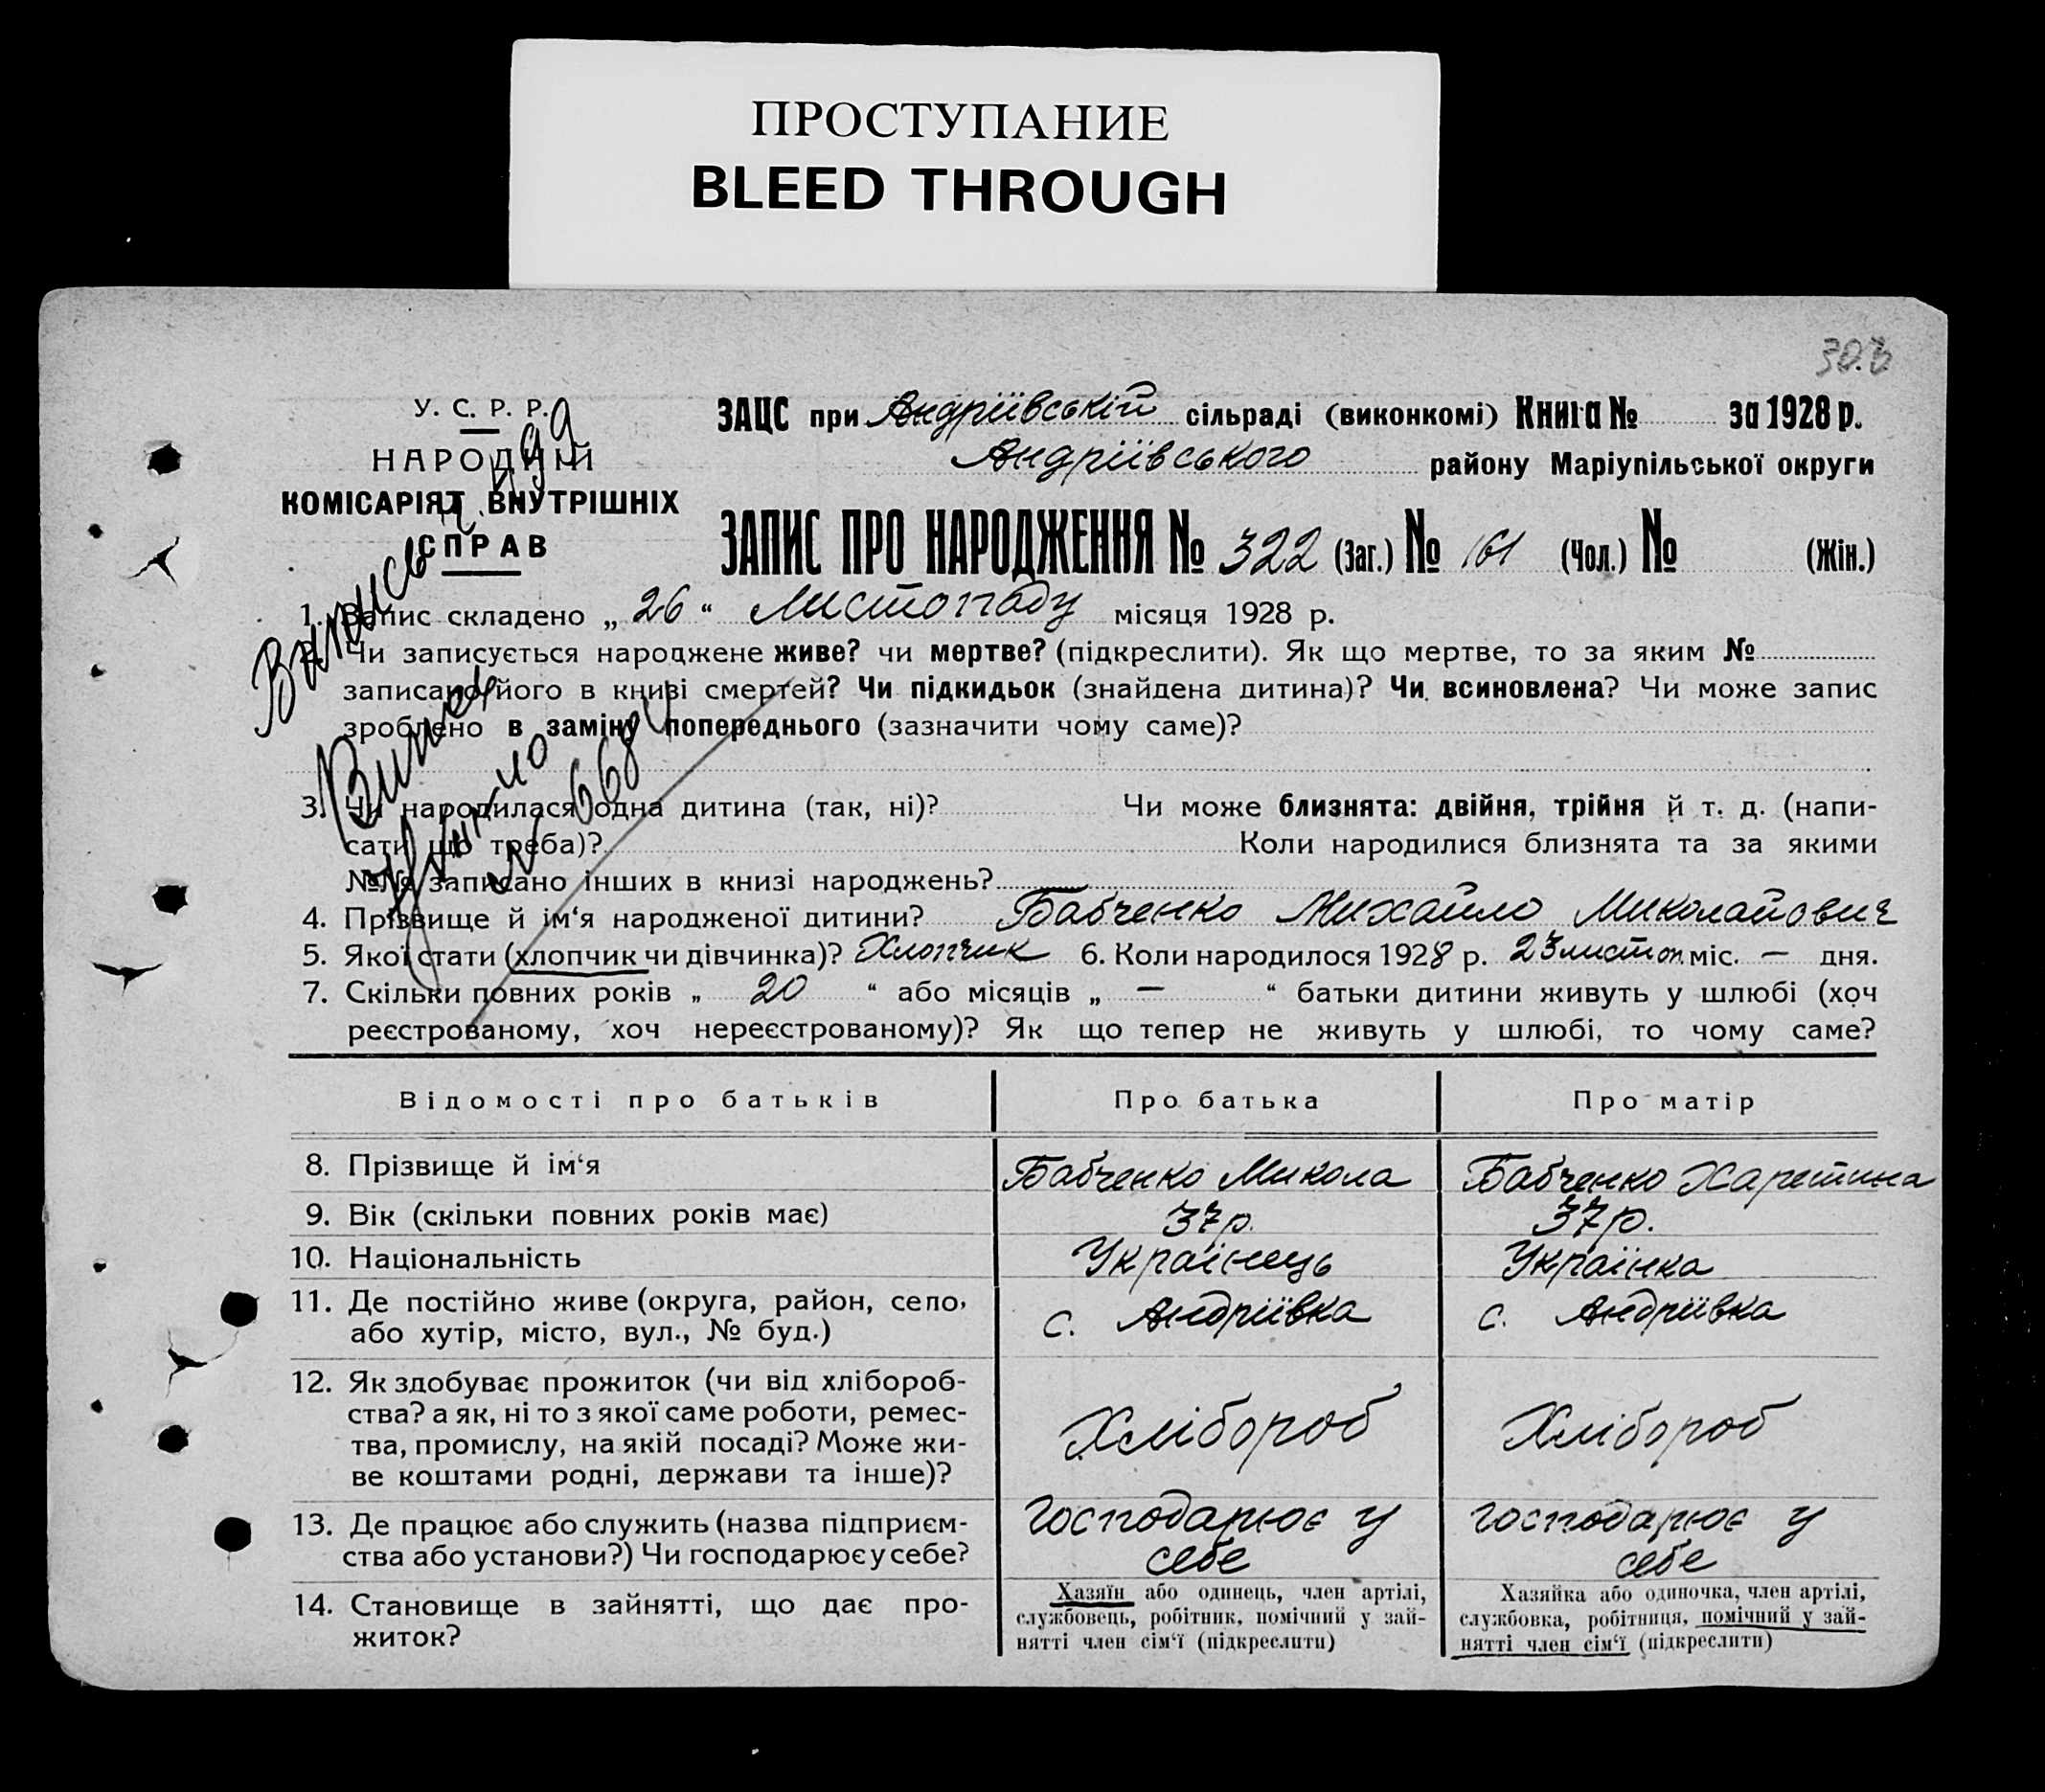 ПРОСТУПАНИЕ
BLEED THROUGH
У. С. Р. Р.
НАРОДНІЙ
КОМІСАРІЯТ ВНУТРІШНІХ
СПРАВ
ЗАЦС при Андріївській сільраді (виконкомі) Книга № за 1928 р.
Андріївського району Маріупільської округи
ЗАПИС ПРО НАРОДЖЕННЯ № 322 (Заг.) № 161 (Чол.) № (Жін.)
1. Запис складено „ 26 “ Листопаду місяця 1928 р.
2. Чи записується народжене живе? чи мертве? (підкреслити). Як що мертве, то за яким №
записано його в книзі смертей? Чи підкидьок (знайдена дитина)? Чи всиновлена? Чи може запис
зроблено в заміну попереднього (зазначити чому саме)?
3. Чи народилася одна дитина (так, ні)? Чи може близнята: двійня, трійня й т. д. (напи-
сати що треба)? Коли народилися близнята та за якими
№№ записано інших в книзі народжень?
4. Прізвище й ім‘я народженої дитини? Бабченко Михайло Миколайович
5. Якої стати (хлопчик чи дівчинка)? Хлопчик 6. Коли народилося 1928 р. 23 листоп. міс. — дня.
7. Скільки повних років „ 20 “ або місяців „ — “ батьки дитини живуть у шлюбі (хоч
реєстрованому, хоч нереєстрованому)? Як що тепер не живуть у шлюбі, то чому саме?
Відомості про батьків Про батька Про матір
8. Прізвище й ім‘я Бабченко Микола Бабченко Харетина
9. Вік (скільки повних років має) 37 р. 37 р.
10. Національність Українець Українка
11. Де постійно живе (округа, район, село,
або хутір, місто, вул., № буд.) с. Андріївка с. Андріївка
12. Як здобуває прожиток (чи від хлібороб-
ства? а як, ні то з якої саме роботи, ремес-
тва, промислу, на якій посаді? Може жи-
ве коштами родні, держави та інше)? Хлібороб Хлібороб
13. Де працює або служить (назва підприєм-
ства або установи?) Чи господарює у себе?
господарює у себе
господарює у себе
14. Становище в зайнятті, що дає про-
житок?
Хазяїн або одинець, член артілі,
службовець, робітник, помічний у зай-
нятті член сім‘ї (підкреслити)
Хазяйка або одиночка, член артілі,
службовка, робітниця, помічний у зай-
нятті член сім‘ї (підкреслити)